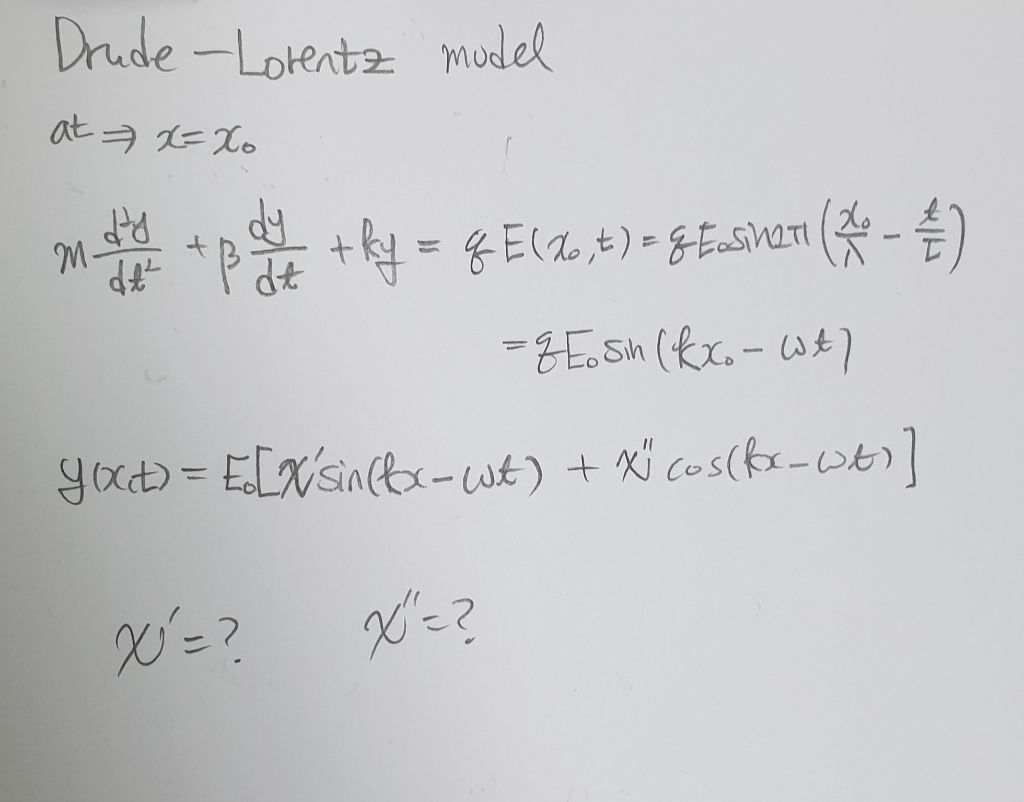 Drude - Lorentz model
at ⇒ x = x₀
m d²y/dt² + β dy/dt + ky = qE(x₀,t) = qE₀sin2π(x₀/λ - t/τ)
= qE₀ sin(kx₀ - ωt)
y(x,t) = E₀[χ'sin(kx - ωt) + χ'' cos(kx - ωt)]
χ' = ? χ'' = ?